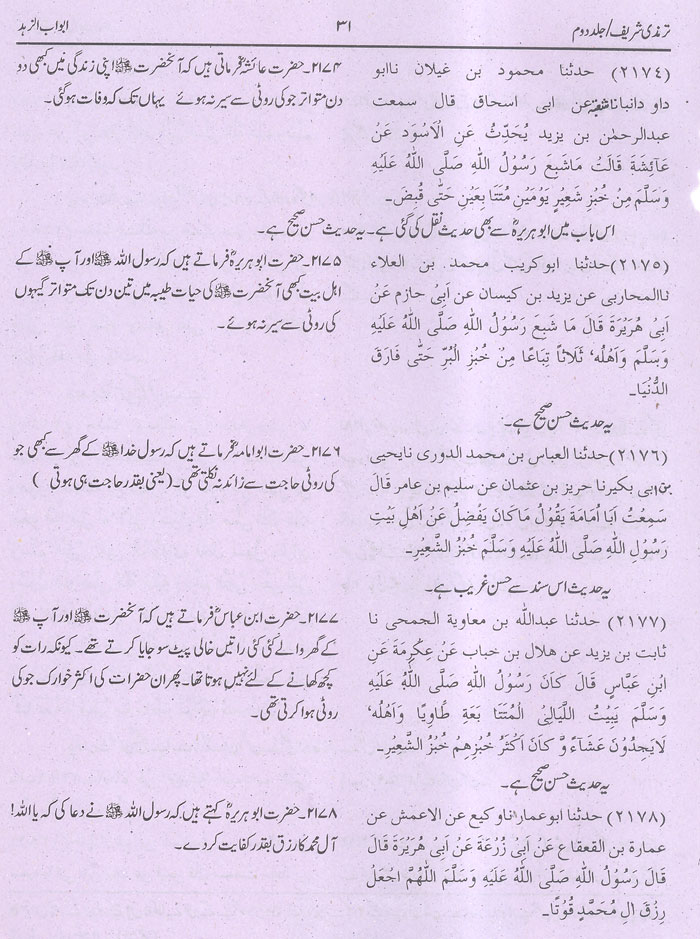 ترمذی شریف/جلد دوم ۳۱ ابواب الزہد
(۲۱۷٤) حدثنا محمود بن غیلان ناابو
داو دانبانا شعبة عن ابی اسحاق قال سمعت
عبدالرحمٰن بن یزید یُحَدِّثُ عَنِ الْاَسْوَدِ عَنْ
عَآئِشَةَ قَالَتْ مَاشَبِعَ رَسُوْلُ اللهِ صَلَّى اللهُ عَلَيْهِ
وَسَلَّمَ مِنْ خُبْزِ شَعِيْرٍ يَوْمَيْنِ مُتَتَابِعَيْنِ حَتّٰى قُبِضَ۔
۲۱۷۴۔ حضرت عائشہؓ فرماتی ہیں کہ آنحضرت ﷺ اپنی زندگی میں کبھی دو
دن متواتر جو کی روٹی سے سیر نہ ہوئے یہاں تک کہ وفات ہوگئی۔
اس باب میں ابو ہریرہؓ سے بھی حدیث نقل کی گئی ہے۔ یہ حدیث حسن صحیح ہے۔
(۲۱۷٥) حدثنا ابو کریب محمد بن العلاء
ناالمحاربی عن یزید بن کیسان عن اَبِیْ حازم عَنْ
اَبِیْ هُرَيْرَةَ قَالَ مَا شَبِعَ رَسُوْلُ اللهِ صَلَّى اللهُ عَلَيْهِ
وَسَلَّمَ وَاَهْلُه‘ ثَلَاثًا تِبَاعًا مِنْ خُبْزِ الْبُرِّ حَتّٰى فَارَقَ
الدُّنْيَا۔
۲۱۷۵۔ حضرت ابو ہریرہؓ فرماتے ہیں کہ رسول اللہ ﷺ اور آپ ﷺ کے
اہل بیت کبھی آنحضرت ﷺ کی حیات طیبہ میں تین دن تک متواتر گیہوں
کی روٹی سے سیر نہ ہوئے۔
یہ حدیث حسن صحیح ہے۔
(۲۱۷٦) حدثنا العباس بن محمد الدوری نایحیی
بن ابی بکیرنا حریز بن عثمان عن سلیم بن عامر قال
سَمِعْتُ اَبَا اُمَامَةَ يَقُوْلُ مَاكَانَ يَفْضُلُ عَنْ اَهْلِ بَيْتِ
رَسُوْلِ اللهِ صَلَّى اللهُ عَلَيْهِ وَسَلَّمَ خُبْزُ الشَّعِيْرِ۔
۲۱۷۶۔ حضرت ابوامامہؓ فرماتے ہیں کہ رسول خدا ﷺ کے گھر سے کبھی جو
کی روٹی حاجت سے زائد نہ نکلتی تھی۔ (یعنی بقدر حاجت ہی ہوتی )
یہ حدیث اس سند سے حسن غریب ہے۔
(۲۱۷۷) حدثنا عبدالله بن معاوية الجمحی نا
ثابت بن یزید عن هلال بن خباب عَنْ عِكْرِمَةَ عَنِ
ابْنِ عَبَّاسٍ قَالَ كَانَ رَسُوْلُ اللهِ صَلَّى اللهُ عَلَيْهِ
وَسَلَّمَ يَبِيْتُ اللَّيَالِىَ الْمُتَتَا بِعَةِ طَاوِيًا وَاَهْلُه‘
لَايَجِدُوْنَ عَشَآءً وَّ كَانَ اَكْثَرُ خُبْزِهِمْ خُبْزُ الشَّعِيْرِ۔
۲۱۷۷۔ حضرت ابن عباسؓ فرماتے ہیں کہ آنحضرت ﷺ اور آپ ﷺ
کے گھر والے کئی کئی راتیں خالی پیٹ سو جایا کرتے تھے۔ کیونکہ رات کو
کچھ کھانے کے لئے نہیں ہوتا تھا۔ پھر ان حضرات کی اکثر خوارک جو کی
روٹی ہوا کرتی تھی۔
یہ حدیث حسن صحیح ہے۔
(۲۱۷۸) حدثنا ابوعمار ناوکیع عن الاعمش عن
عمارة بن القعقاع عَنْ اَبِیْ زُرْعَةَ عَنْ اَبِیْ هُرَيْرَةَ قَالَ
قَالَ رَسُوْلُ اللهِ صَلَّى اللهُ عَلَيْهِ وَسَلَّمَ اَللّٰهُمَّ اجْعَلْ
رِزْقَ اٰلِ مُحَمَّدٍ قُوْتًا۔
۲۱۷۸۔ حضرت ابو ہریرہؓ کہتے ہیں کہ رسول اللہ ﷺ نے دعا کی کہ یا اللہ!
آل محمد کا رزق بقدر کفایت کردے۔